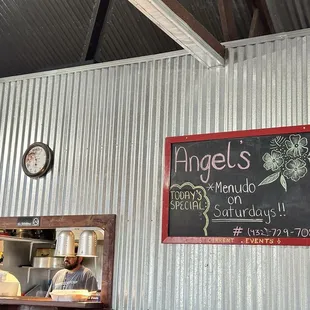 Angel's
TODAY'S
SPECIAL:
*Menudo
on
Saturdays!!
# (432) 729-70
CURRENT EVENTS